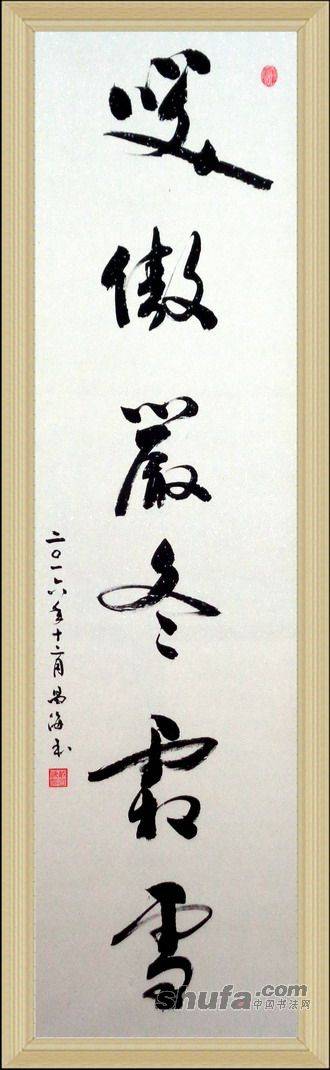 咲傲嚴冬霜雪
二〇一六年十二月昌海书
shufa.com
中国书法网